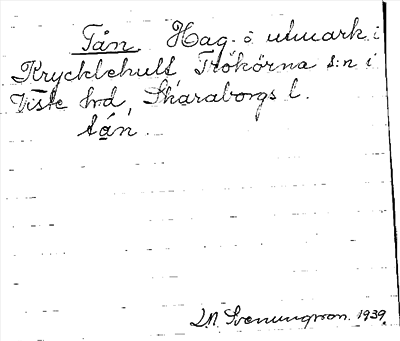 Tån Hag o utmark i
Krycklehult, Trökörna s:n i
Viste hd, Skaraborgs l.
tån.
Svenungsson. 1939